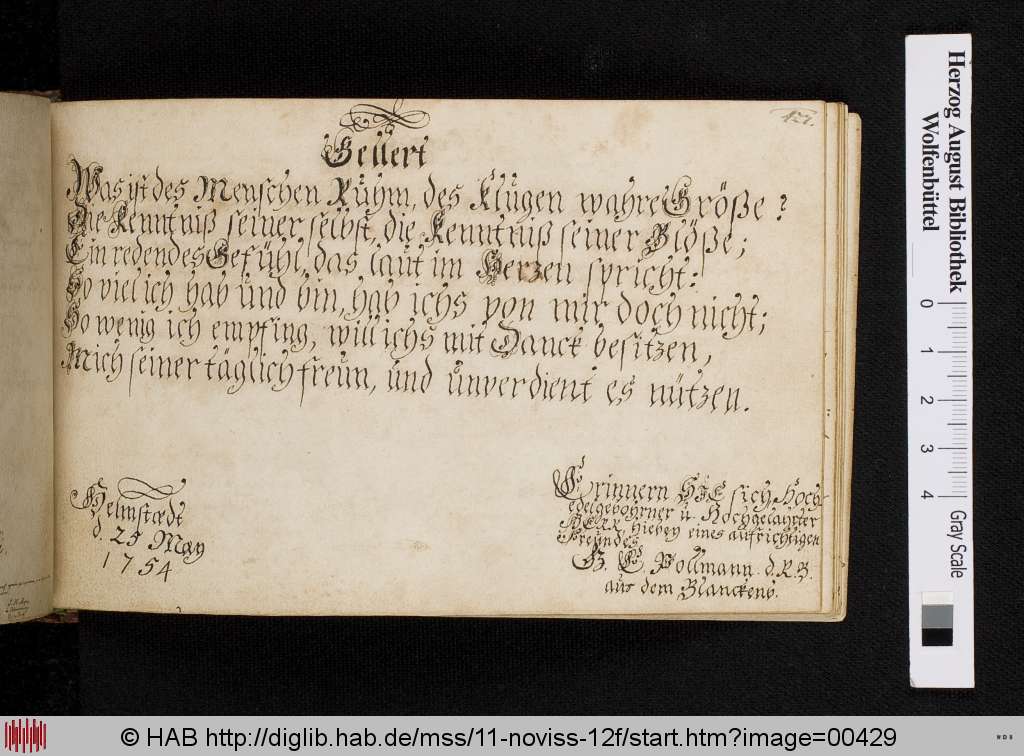 Gellert
Was ist des Menschen Ruhm, des Klugen wahre Größe?
Die Kenntniß seiner selbst, die Kenntniß seiner Blöße;
Ein redendes Gefühl, das laut im Herzen spricht:
So viel ich hab und bin, hab ichs von mir doch nicht;
So wenig ich empfing, will ichs mit Danck besitzen,
Mich seiner täglich freun, und unverdient es nützen.
Helmstædt
d. 25 May
1754
Erinnern SIE sich, Hoch-
edelgebohrner u. Hochgelahrter
HERR hiebey eines aufrichtigen
Freundes
Pollmann. d. R. B.
aus dem Blanckenb.
Herzog August Bibliothek
Wolfenbüttel
0 1 2 3 4 Gray Scale
© HAB http://diglib.hab.de/mss/11-noviss-12f/start.htm?image=00429